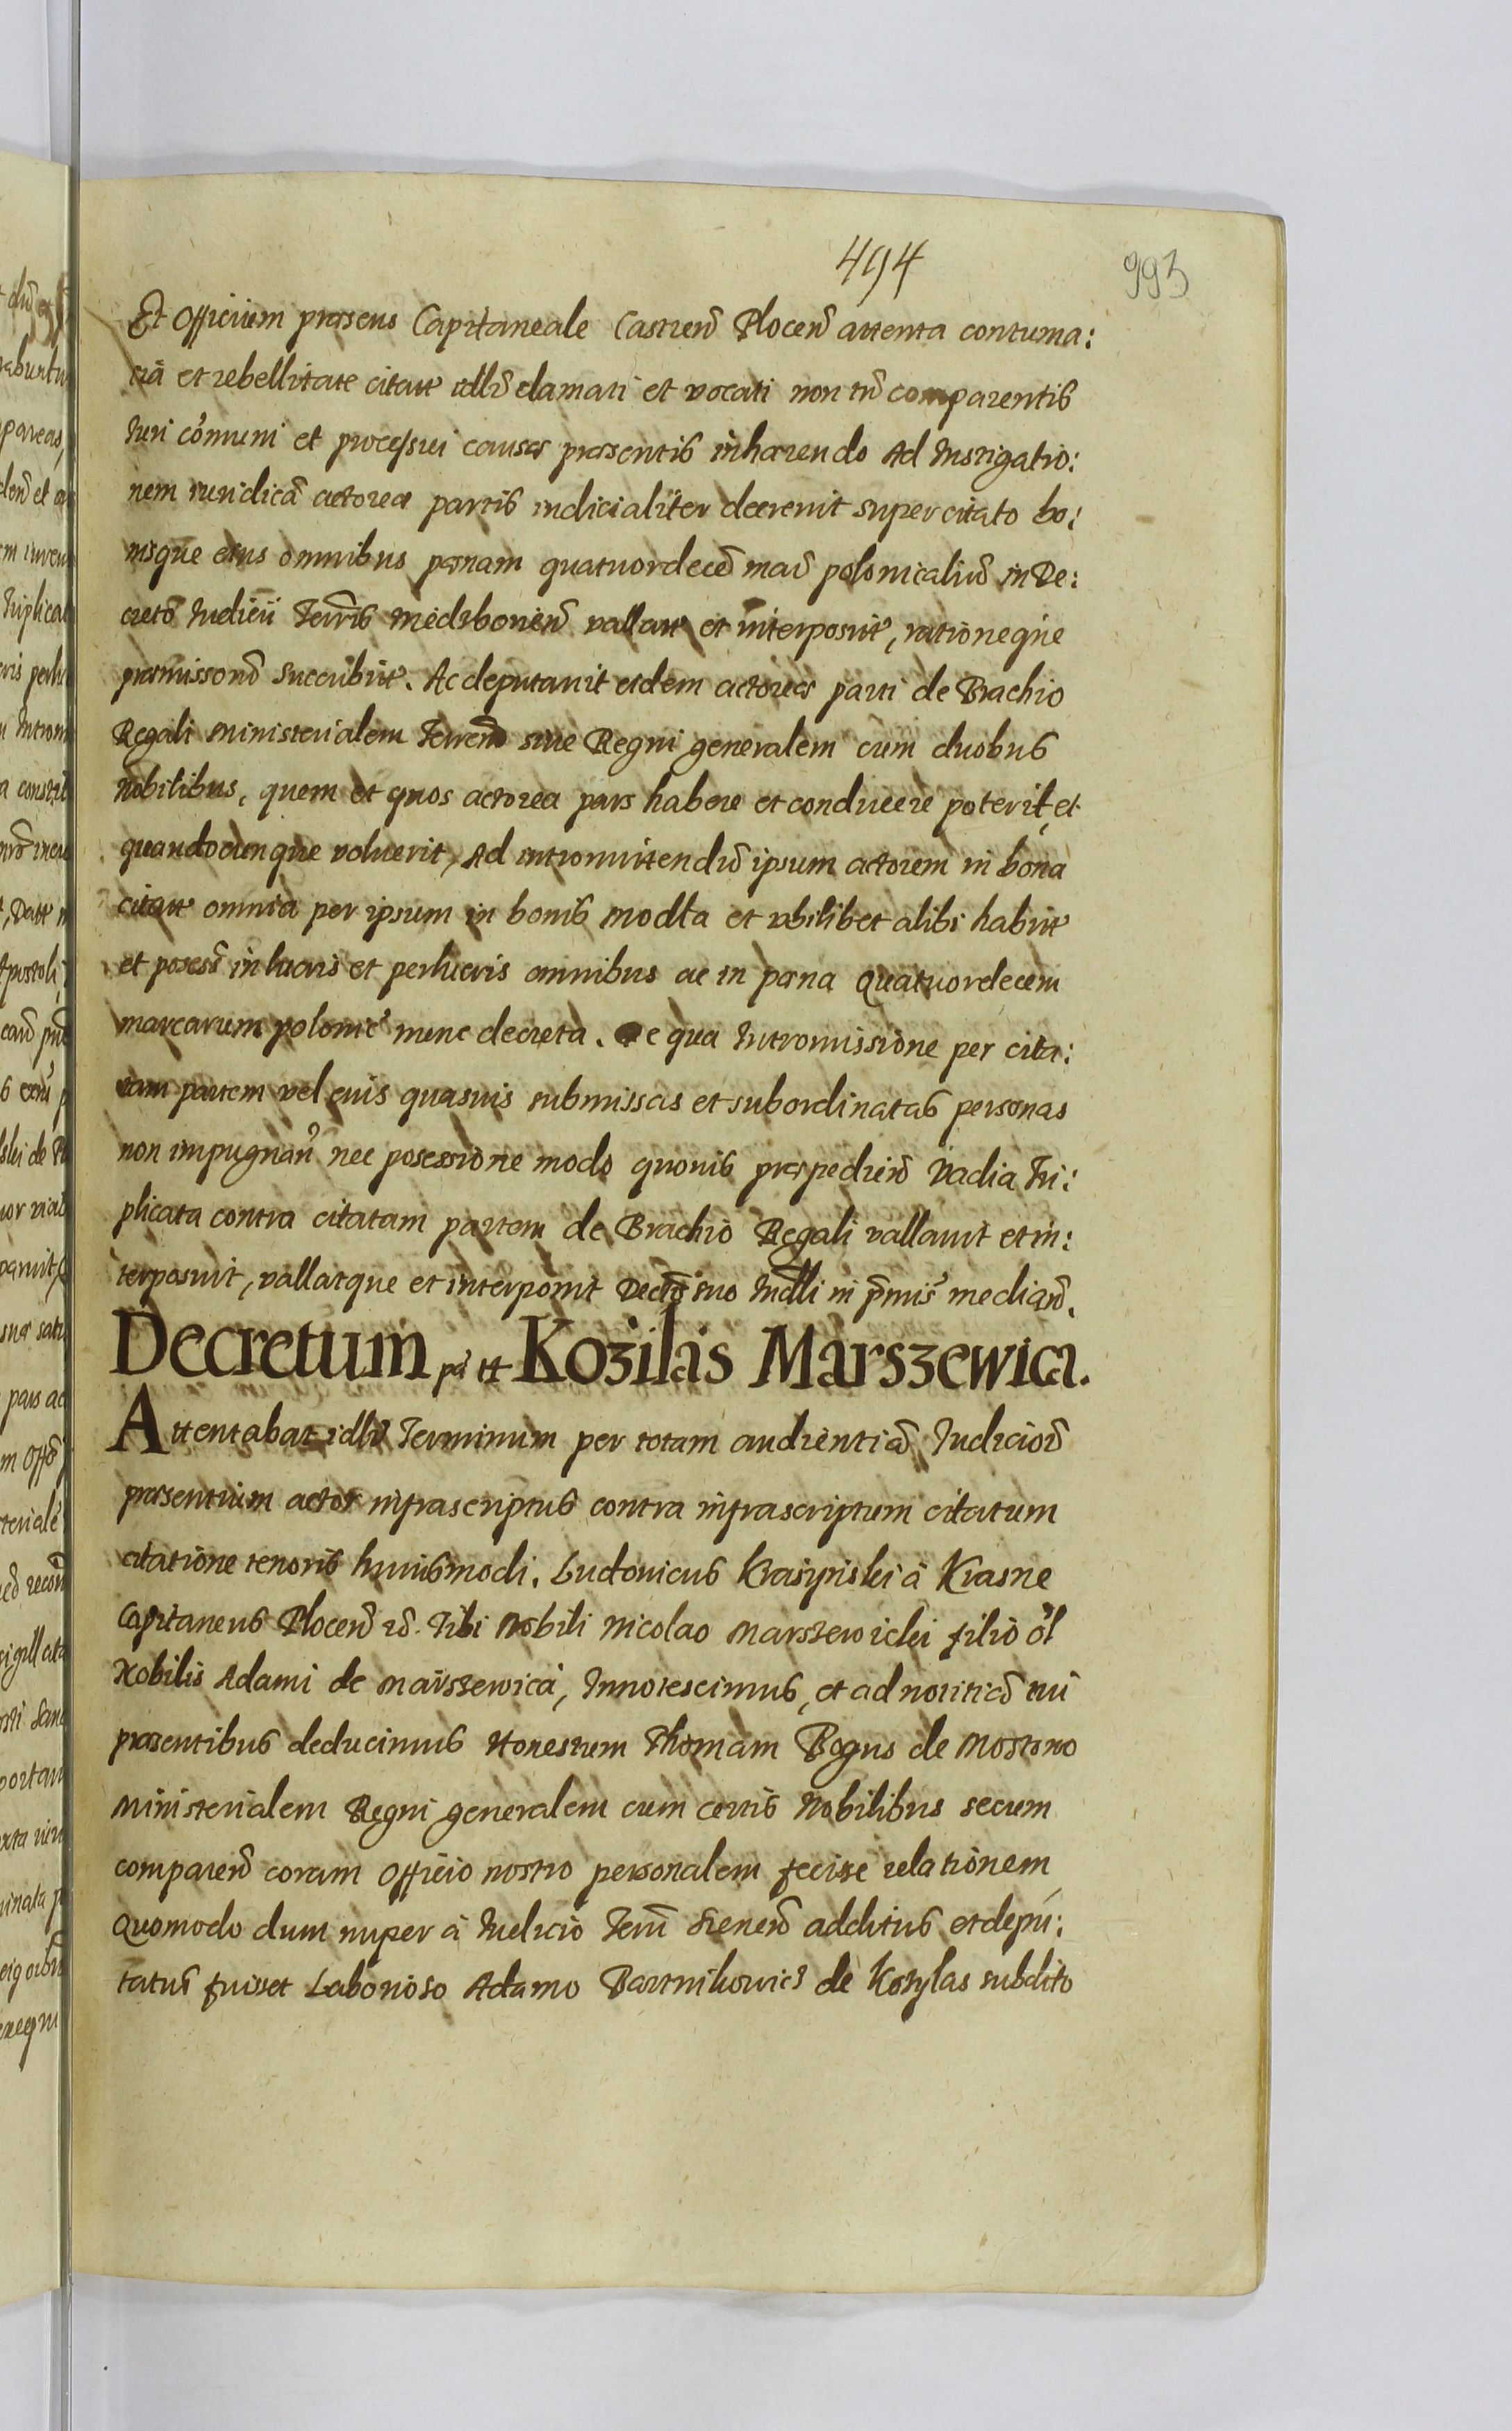 494
993
Et Officium præsens Capitaneale Castren̄ Plocen̄ attenta contuma:
ciā et rebellitate citati idl̄r clamati et vocati non tn̄ comparentis
Iuri cōmuni et processui causæ præsentis inhærendo Ad Instigatio:
nem iuridicā actoreæ partis iudicialiter decrevit super citato bo:
nisque eius omnibus pœnam quatuordecē mar̄ polonicaliū in De:
creto Iudicii Terrīs vallatt et interposit, rationeque
præmissorū succubuit. Ac deputavit eidem actoreæ parti de Brachio
Regali Ministerialem Terren̄ sive Regni generalem cum duobus
Nobilibus, quem et quos actorea pars habere et conducere poterit, et
quandocunque voluerit, Ad intromittendū ipsum actorem in bona
citati omnia per ipsum in bonis Modla et ubilibet alibi habit
et posess̄ in lucris et perlucris omnibus ac in pœna quatuordecem
marcarum polonic nunc decreta. De qua Intromissione per cita:
tam partem vel eius quasvis submissas et subordinatas personas
non impugnan̄ nec posessione modo quovis præpedien̄ Vadia Tri:
plicata contra citatam partem de Brachio Regali vallavit et in:
terposuit, vallatque et interponit Decr̄o suo Iudl̄i in p̄mis median̄.
Decretum Kozilas Marszewica.
Attentabat idl̄r Terminum per totam audientiā Iudiciorū
præsentium actor infrascriptus contra infrascriptum citatum
citatione tenoris huiusmodi. Ludovicus Krasynski à Krasne
Capitaneus Plocen̄ . Tibi Nobili Nicolao Marszewicki filio ōl
Nobilis Adami de Marszewica, Innotescimus, et ad notitiā tui
præsentibus deducimus Honestum Thomam Bogus de Mostowo
Ministerialem Regni generalem cum certis Nobilibus secum
comparen̄ coram Officio nostro personalem fecisse relationem
Quomodo dum nuper à Iudicio Terr̄i Sienen̄ additus et depu:
tatus fuisset Laborioso Adamo Bartnikowicz de Kozylas subdito